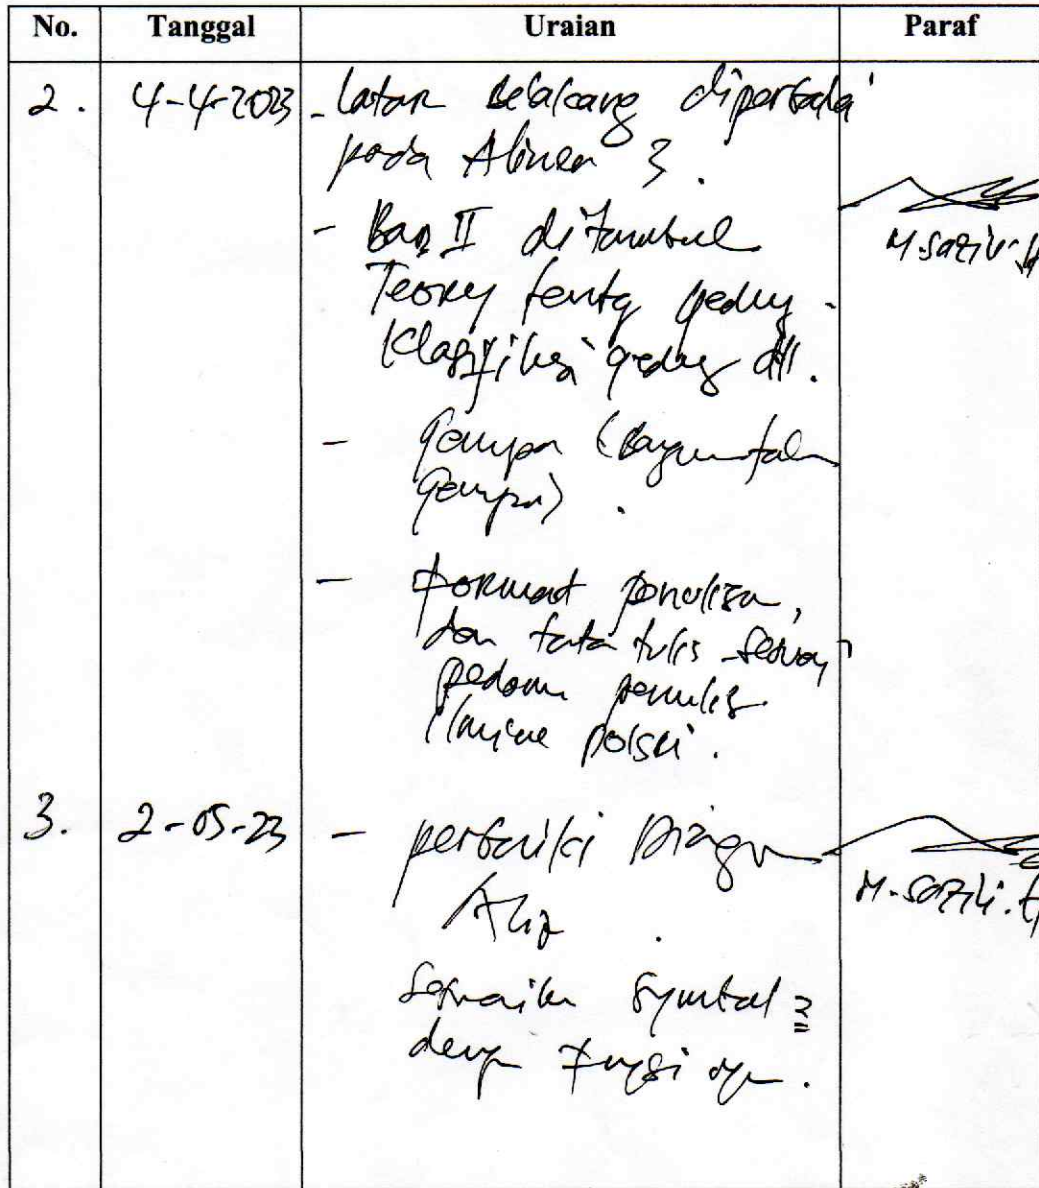 No. Tanggal Uraian Paraf
2. 4-4-2023 - Latar Belakang diperbaiki
pada Alinea 3.
- Bab II ditambah
Teory tentg gedug.
Klasifikasi gedug dll.
- Gempa (
Gempa).
- Format penulisan,
dan tata tulis sesuai
pedoman penulis
ilmiah polsri.
M. Sazili
3. 2-05-23 - perbaiki Diagram
Alir.
sesuaikan symbol 2
dengan Fungsi nya.
M. Sazili.